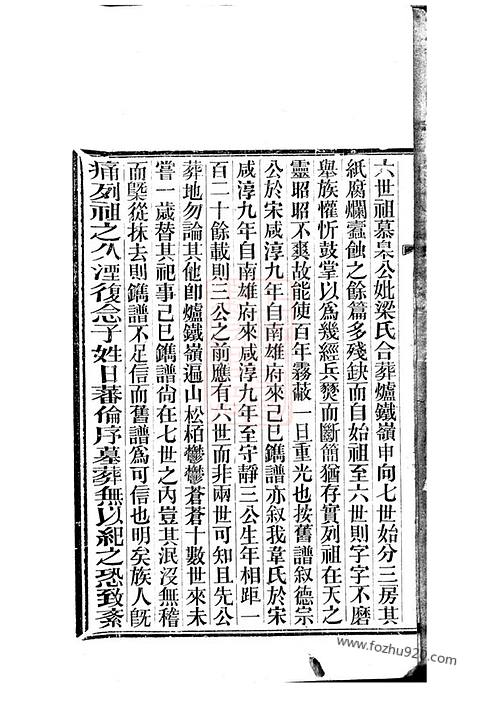 六世祖慕臯公妣梁氏合葬爐鐵嶺申向七世始分三房其
紙腐爛蠹蝕之餘篇多殘缺而自始祖至六世則字字不磨
舉族懽忻鼓掌以爲幾經兵燹而斷簡猶存實列祖在天之
靈昭昭不爽故能使百年霧蔽一日重光也按舊譜叙德宗
公於宋咸淳九年自南雄府來己巳鐫譜亦叙我韋氏於宋
咸淳九年自南雄府來咸淳九年至守靜三公生年相距一
百二十餘載則三公之前應有六世而非兩世可知且先公
葬地勿論其他卽爐鐵嶺遍山松栢鬱鬱蒼蒼十數世來未
嘗一歲替其祀事己巳鐫譜尙在七世之內豈其泯沒無稽
而槩從抹去則鐫譜不足信而舊譜爲可信也明矣族人旣
痛列祖之久湮復念子姓日蕃倫序墓葬無以紀之恐致紊
www.fozhu920.com